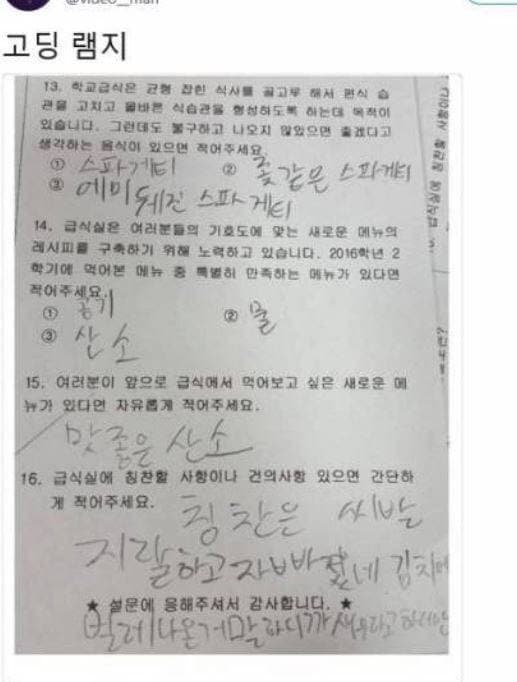 @video__man
고딩 램지
13. 학교급식은 균형 잡힌 식사를 골고루 해서 편식 습
관을 고치고 올바른 식습관을 형성하도록 하는데 목적이
있습니다. 그런데도 불구하고 나오지 않았으면 좋겠다고
생각하는 음식이 있으면 적어주세요.
① 스파게티 ② 좆같은 스파게티
③ 에미 뒤진 스파게티
14. 급식실은 여러분들의 기호도에 맞는 새로운 메뉴의
레시피를 구축하기 위해 노력하고 있습니다. 2016학년 2
학기에 먹어본 메뉴 중 특별히 만족하는 메뉴가 있다면
적어주세요.
① 공기 ② 물
③ 산소
15. 여러분이 앞으로 급식에서 먹어보고 싶은 새로운 메
뉴가 있다면 자유롭게 적어주세요.
맛좋은 산소
16. 급식실에 칭찬할 사항이나 건의사항 있으면 간단하
게 적어주세요.
칭찬은 씨발
지랄하고 자빠졌네 김치에
★ 설문에 응해주셔서 감사합니다. ★
벌레나온거 말하니까 새우라고 하